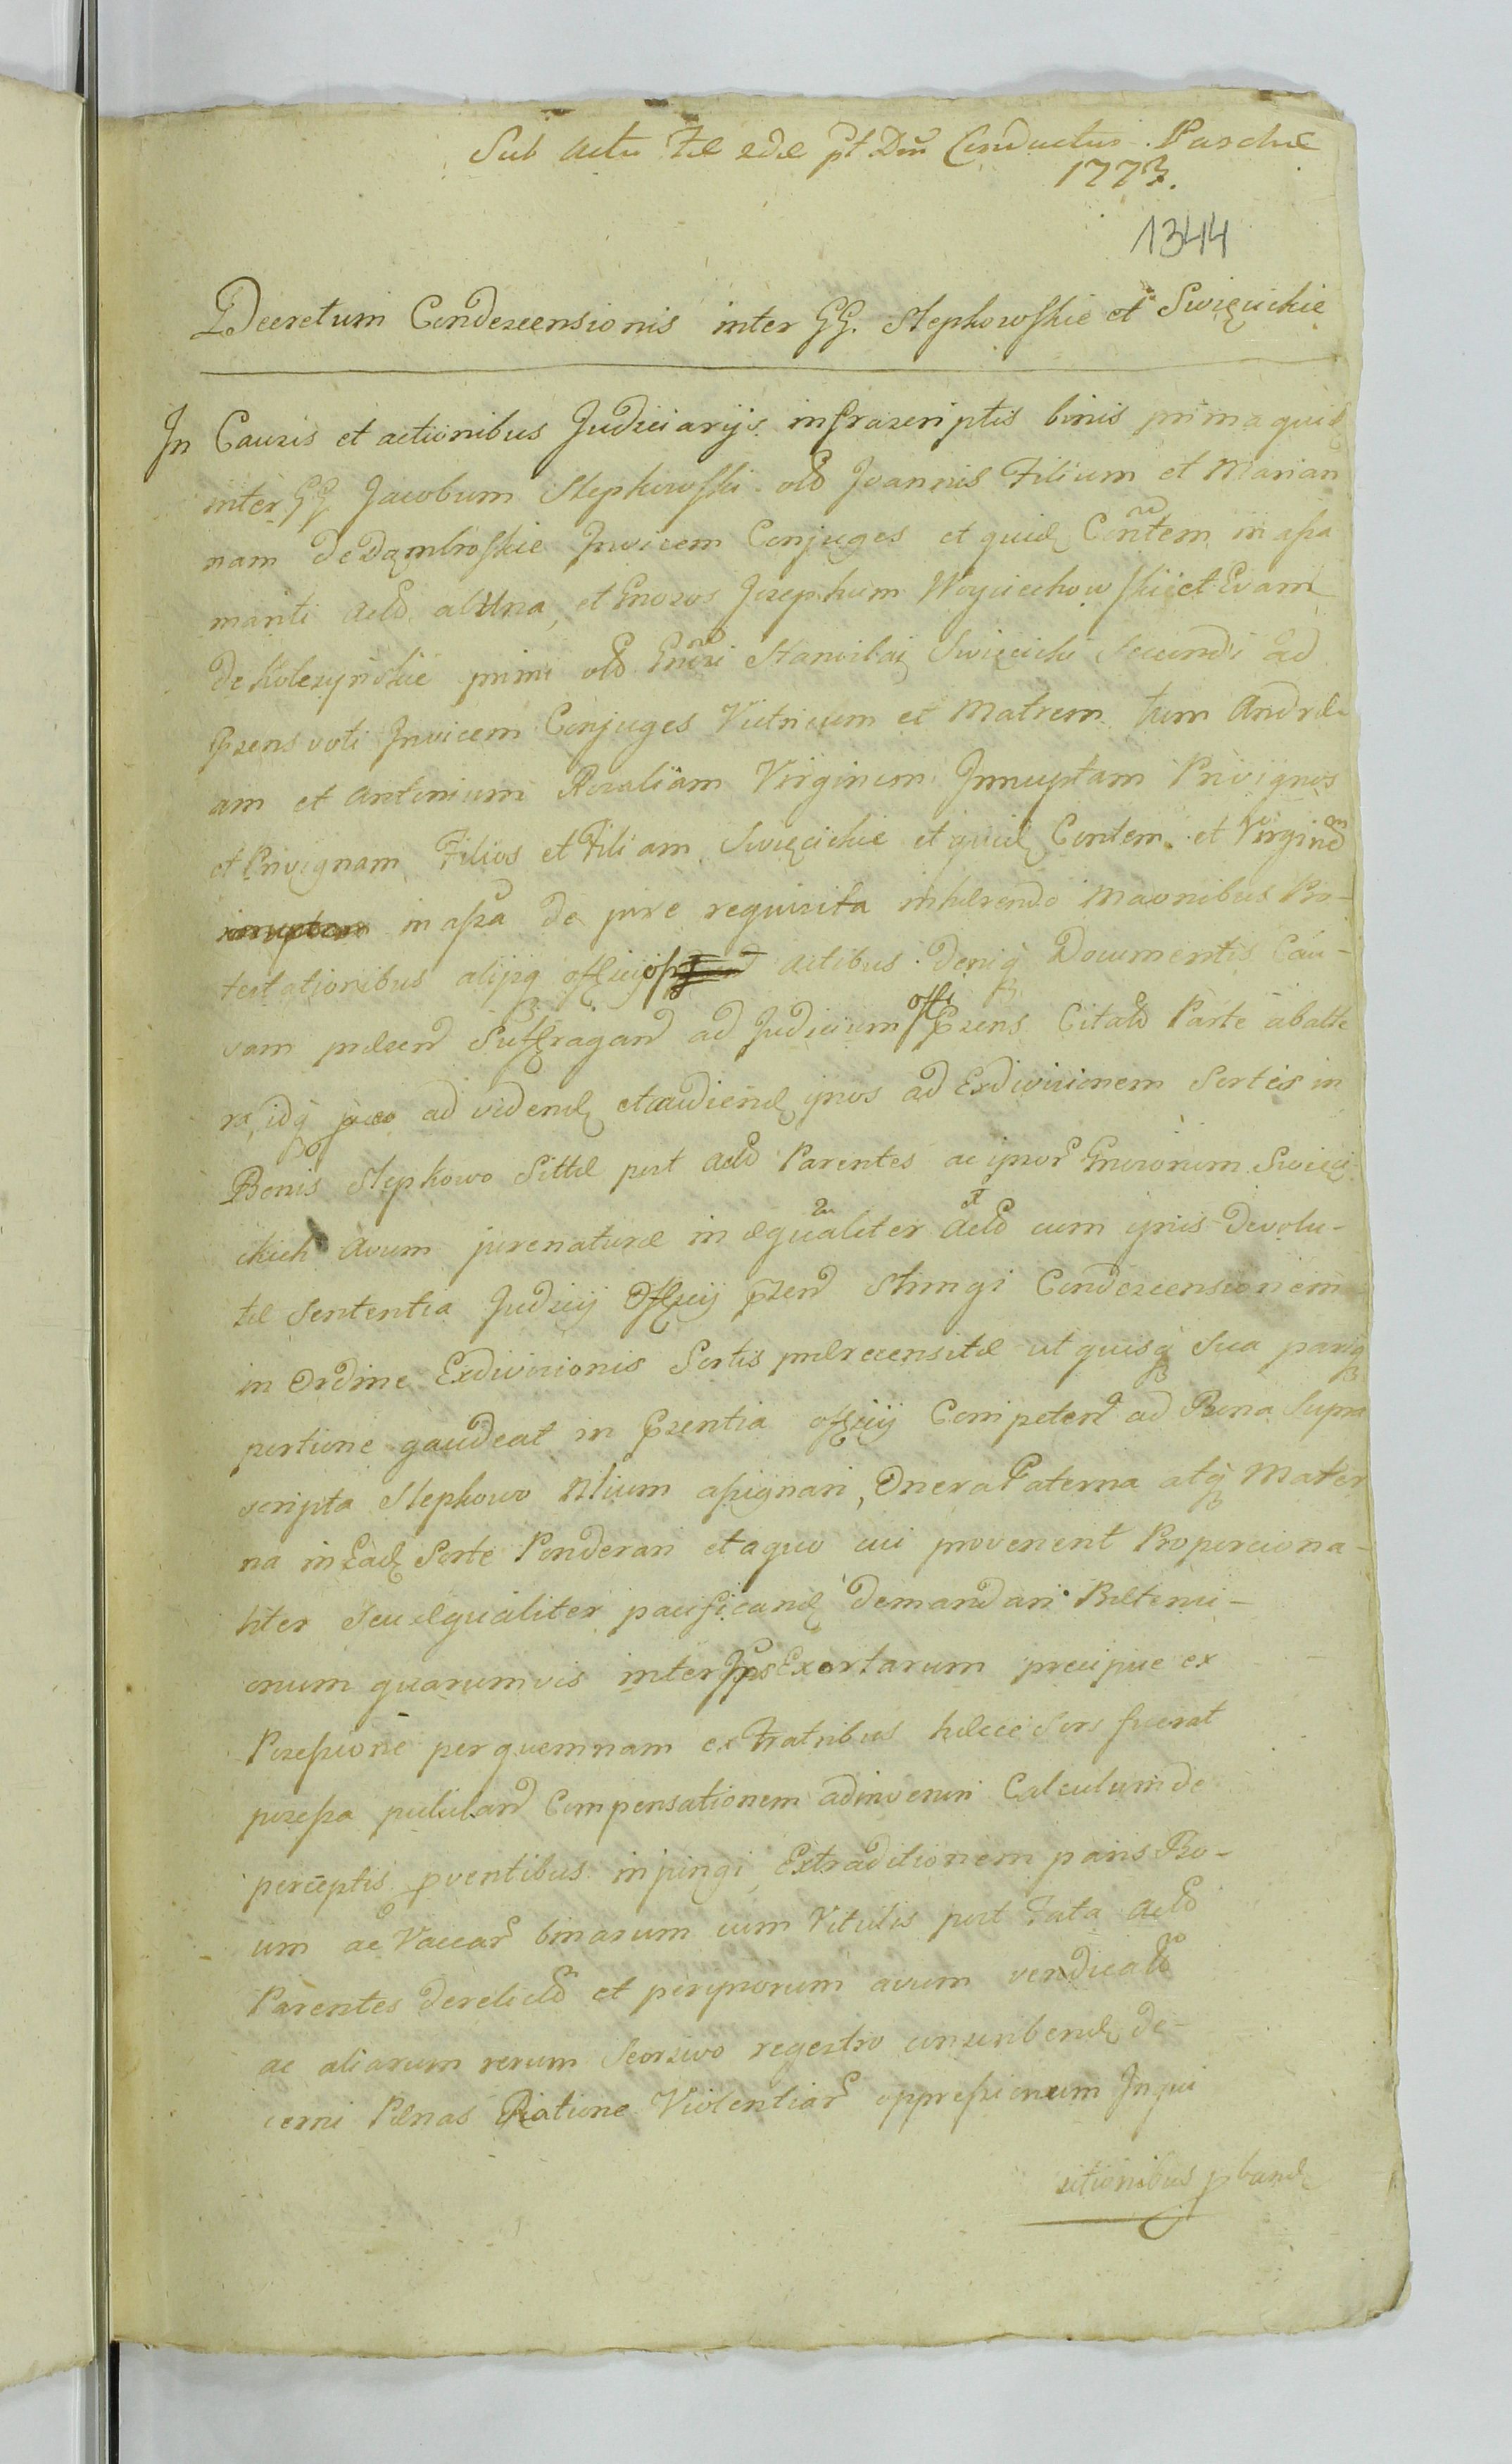 Sub Actu Fæ 2dæ pt Dnī Conductus Paschæ
1773.
1344
Decretum Condescensionis inter GG. Stepkowskie et Swięcickie
In Causis et actionibus Judiciarijs infrascriptis binis prima quid
inter GG Jacobum Stepkowski olð Joannis Filium et Marian
nam de Dąmbroskie Invicem Conjuges et quid Contem in assa
manti Actð ab Una, et Gnosos Josephum Woyciechowskii et Evam
de Kolczyńskie primi olð Gnosi Stanislai Swięcicki Secundi ad
Pzens voti Invicem Conjuges Vitricum et Matrem tum Andræ
am et Antonium Rozaliam Virginem Innuptam Privignos
et Privignam Filios et Filiam Swięcickie et quid Contem et Virginem
in assa de jure requisita inhærendo Maonibus Pro-
testationibus alijsq officijos actibus deniq Documentis Cau-
sam præsend Suffragand ad Judicium offi Pzens Citatð Parte ab alte
ra, idq ad videnð et audienð ipsos ad Exdivisionem Sortis in
Bonis Stepkowo Sittæ post Actð Parentes ac ipsor Gnosorum Swięci
ckich Avum jure naturæ in æqualiter Actð cum ipsis devolu-
tæ Sententia Judicij Officij pzend Stringi Condescensionem
in Ordine Exdivisionis Sortis præcensitæ ut quisq sua pariq
portione gaudeat in Pzentia officij Competend ad Bona Supra
scripta Stepkowo Altum assignari, Onera Paterna atq Mater
na in Eað Sorte Ponderari et a quo cui provenent Proporciona-
liter seu æqualiter pacificand demandari Prætensi-
onum quarumvis inter Ipsos Exortarum precipue ex
Possessione per quemnam ex Fratribus hæcce Sors fuerat
possessa pululand Compensationem adinveniri Calculum de
perceptis pventibus inpingi Extraditionem paris Bo-
um ac Vaccar binarum cum Vitulis post Fata Actð
Parentes derelictð et per ipsorum avum vendicatð
ac aliarum rerum Seorsivo regestro conscribend de-
cerni Pænas Ratione Violentiar oppressionum Inqui
sitionibus pband